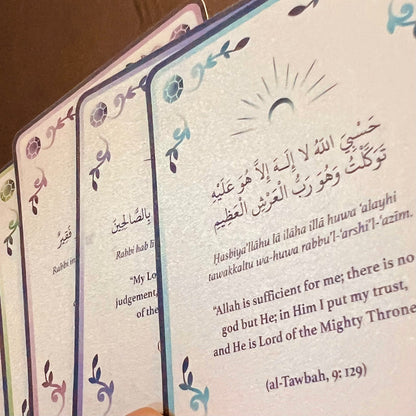 حَسْبِيَ اللهُ لا إِلَـهَ إِلاَّ هُوَ عَلَيْهِ
تَوَكَّلْتُ وَهُوَ رَبُّ الْعَرْشِ الْعَظِيمِ
Ḥasbiya'llāhu lā ilāha illā huwa ʿalayhi
tawakkaltu wa-huwa rabbu'l-ʿarshi'l-ʿaẓīm.
“Allah is sufficient for me; there is no
god but He; in Him I put my trust,
and He is Lord of the Mighty Throne
(al-Tawbah, 9: 129)
بِالصَّالِحِينَ
Rabbi hab
“My Lo
judgement,
of the
فَقِيرٌ
Rabbi in